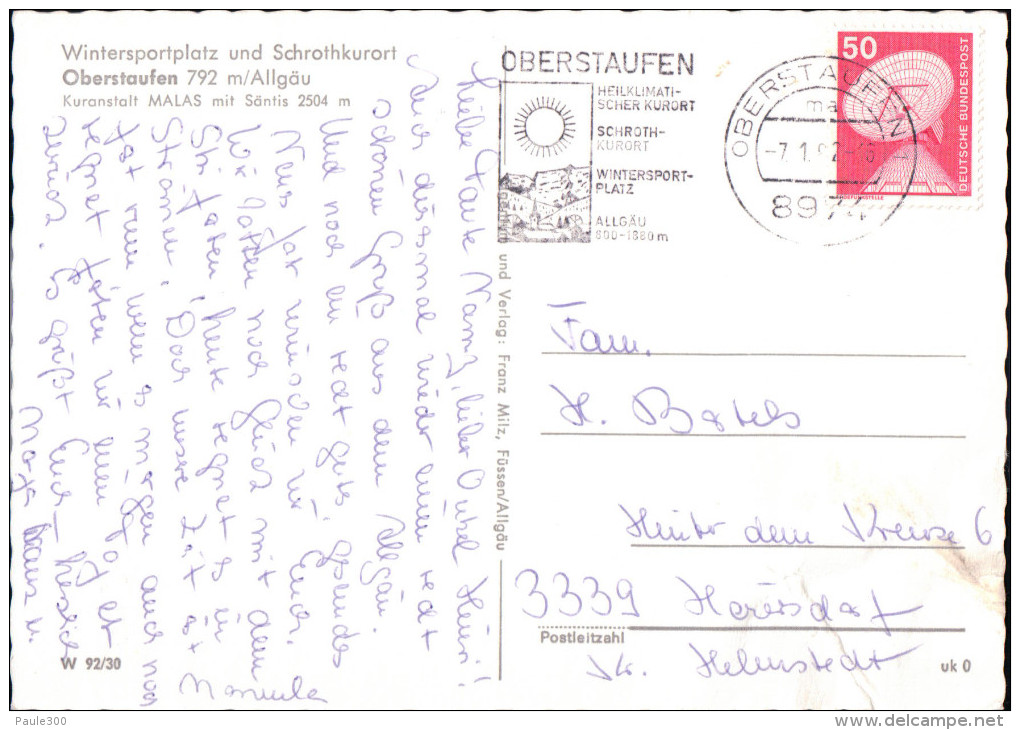 Wintersportplatz und Schrothkurort
Oberstaufen 792 m/Allgäu
Kuranstalt MALAS mit Säntis 2504 m
Liebe Tante Namz, lieber Onkel Heini!
Auch diesmal wieder einen recht
schönen Gruß aus dem Allgäu.
Und noch ein recht gutes, gesundes
Neues Jahr wünschen wir Euch.
Wir hatten noch Glück mit dem
Ski fahren, heute regnet es in
Strömen. Doch unsere Zeit ist
fast rum wenn es morgen auch noch
regnet fahren wir
zurück. Es grüßt Euch herzlich
Klaus u.
Manuela
OBERSTAUFEN
HEILKLIMATI-
SCHER KURORT
SCHROTH-
KURORT
WINTERSPORT-
PLATZ
ALLGÄU
800-1880 m
OBERSTAUFEN
8974
50
DEUTSCHE BUNDESPOST
und Verlag: Franz Milz, Füssen/Allgäu
Fam.
H. Bartels
Hinter dem Kreuze 6
3339 Hoiersdorf
Postleitzahl
Kr. Helmstedt
W 92/30
uk 0
Paule300
delcampe.net